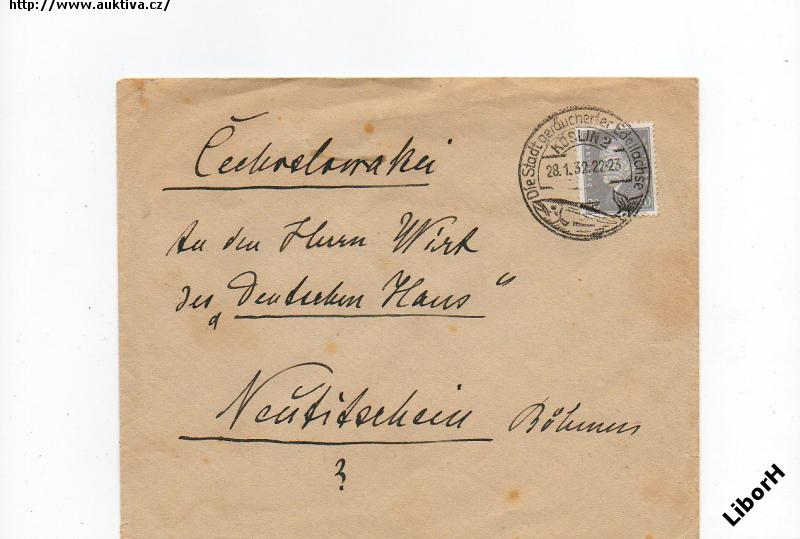 http://www.auktiva.cz/
Die Stadt geräucherter Edellachse
KÖSLIN 2
28.1.32.22-23
Čechoslowakei
An den Herrn Wirt
des „Deutschen Haus“
Neutitschein Böhmen
?
LiborH